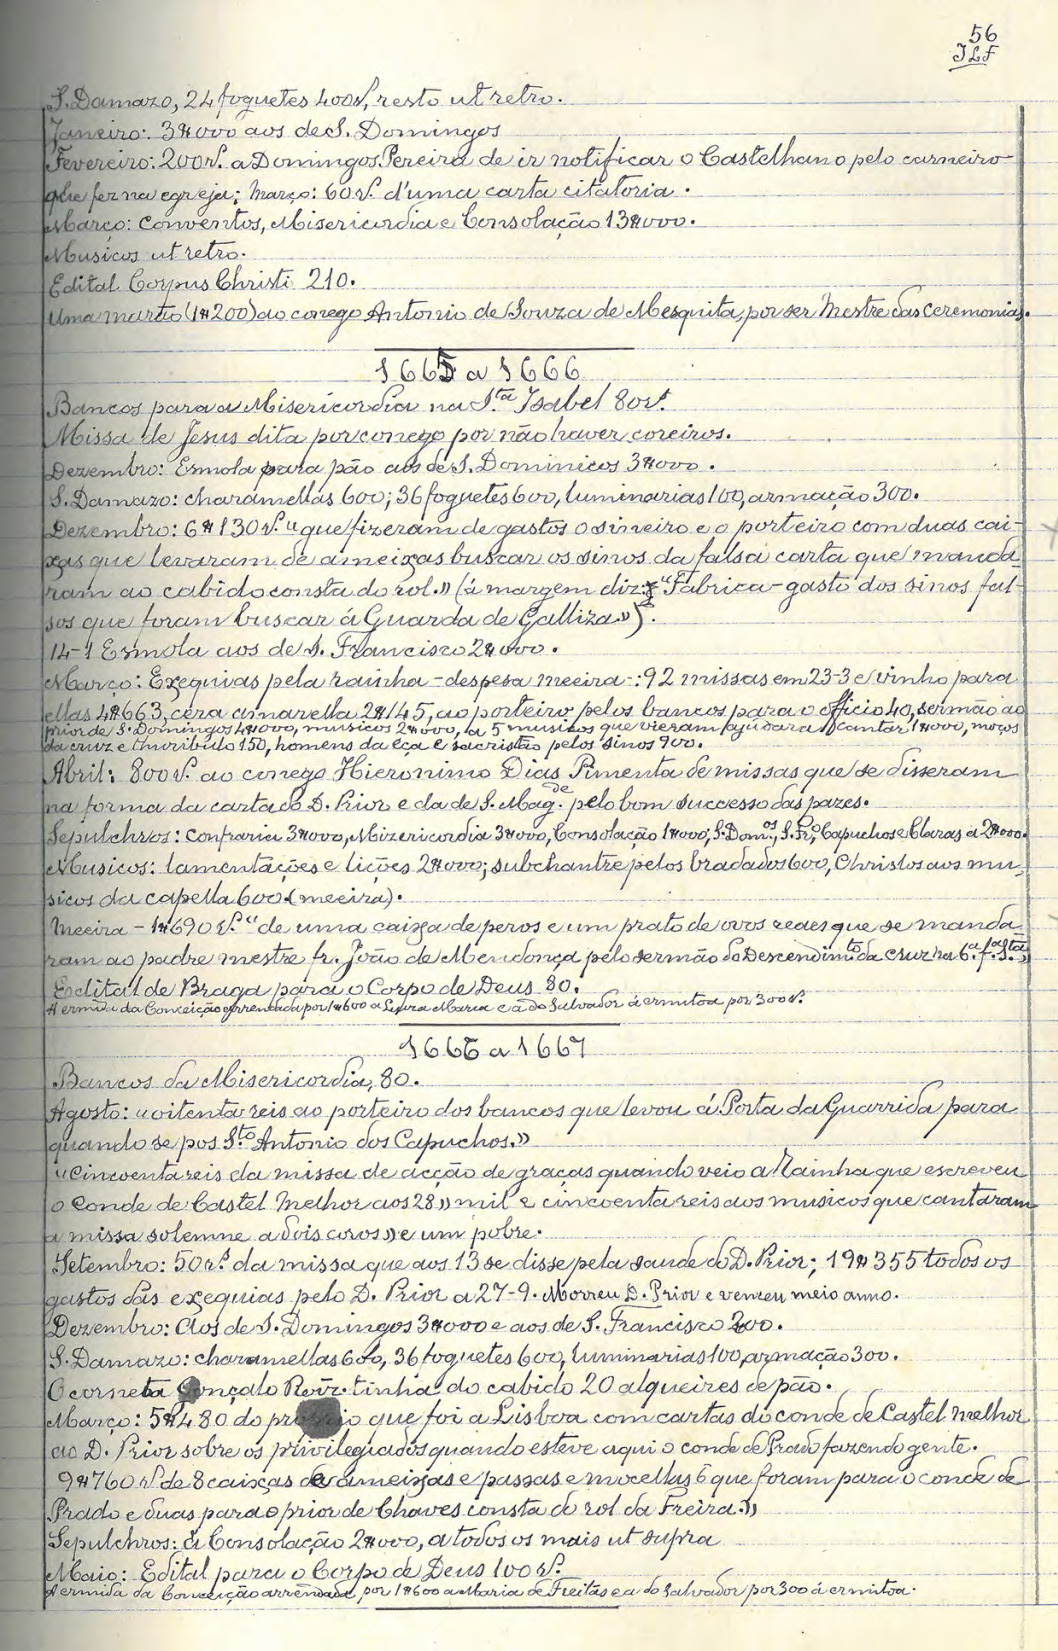 56
JLF
S. Damazo, 24 foguetes 400 rs, resto ut retro.
Janeiro: 3$000 aos de S. Domingos
Fevereiro: 200 rs. a Domingos Pereira de ir notificar o Castelhano pelo carneiro
que fer na egreja; Março: 60 rs. d'uma carta citatoria.
Março: conventos, Misericordia e Consolação 13$000.
Musicos ut retro.
Edital Corpus Christi 210.
Uma marrã (1$200) ao conego Antonio de Souza de Mesquita, por ser Mestre das Ceremonias.
1665 a 1666
Bancos para a Misericordia na Sta Isabel 80 rs.
Missa de Jesus dita por conego por não haver coreiros.
Dezembro: Esmola para pão aos de S. Dominicos 3$000.
S. Damazo: charamellas 600; 36 foguetes 600, luminarias 100, armação 300.
Dezembro: 6$130 rs. "que fizeram de gastos o sineiro e o porteiro com duas cai-
xas que levaram de ameixas buscar os sinos da falsa carta que manda-
ram ao cabido consta do rol.» (á margem diz: «Fabrica - gasto dos sinos fal-
sos que foram buscar á Guarda de Galliza.»).
14-1 Esmola aos de S. Francisco 2$000.
Março: Exequias pela rainha - despesa meeira -: 92 missas em 23-3 e vinho para
ellas 4$663, cera amarella 2$145, ao porteiro pelos bancos para o officio 40, sermão ao
prior de S. Domingos 4$000, musicos 2$000, a 5 musicos que vieram ajudar a cantar 1$000, moços
da cruz e thuribulo 150, homens da eça e sacristão pelos sinos 900.
Abril: 800 rs. ao conego Hieronimo Dias Pimenta de missas que se disseram
na forma da carta do D. Prior e da de S. Magde. pelo bom successo das pazes.
Sepulchros: Confraria 3$000, Mizericordia 3$000, Consolação 1$000; S. Domos, S. Fro, Capuchos e Claras a 2$000.
Musicos: lamentações e lições 2$000; subchantre pelos bradados 600, Christos aos mu-
sicos da capella 600. (meeira).
Meeira - 1$690 rs. "de uma caixa de peros e um prato de ovos reaes que se manda-
ram ao padre mestre fr. João de Mendonça pelo sermão do Descendimto da cruz na 6a. fa. Sta.»
Edital de Braga para o Corpo de Deus 80.
A ermida da Conceição arrendada por 1$600 a Maria e a do Salvador á ermitoa por 300 rs.
1666 a 1667
Bancos da Misericordia, 80.
Agosto: "oitenta reis ao porteiro dos bancos que levou á Porta da Guarrida para
quando se pos Sto Antonio dos Capuchos.»
"Cincoenta reis da missa de acção de graças quando veio a Rainha que escreveu
o Conde de Castel Melhor aos 28» mil e cincoenta reis aos musicos que cantaram
a missa solemne a dois coros» e um pobre.
Setembro: 50 rs. da missa que aos 13 se disse pela saude do D. Prior; 19$355 todos os
gastos das exequias pelo D. Prior a 27-9. Morreu D. Prior e venceu meio anno.
Dezembro: Aos de S. Domingos 3$000 e aos de S. Francisco 200.
S. Damazo: charamellas 600, 36 foguetes 600, luminarias 100, armação 300.
O corneta Gonçalo Roiz. tinha do cabido 20 alqueires de pão.
Março: 5$480 do proprio que foi a Lisboa com cartas do conde de Castel Melhor
ao D. Prior sobre os privilegiados quando esteve aqui o conde de Prado fazendo gente.
9$760 rs. de 8 caixas de ameixas e passas e morcellas 6 que foram para o conde de
Prado e duas para o prior de Chaves consta do rol da Freira.»
Sepulchros: á Consolação 2$000, a todos os mais ut supra
Maio: Edital para o Corpo de Deus 100 rs.
A ermida da Conceição arrendada por 1$600 a Maria de Freitas e a do Salvador por 300 á ermitoa.